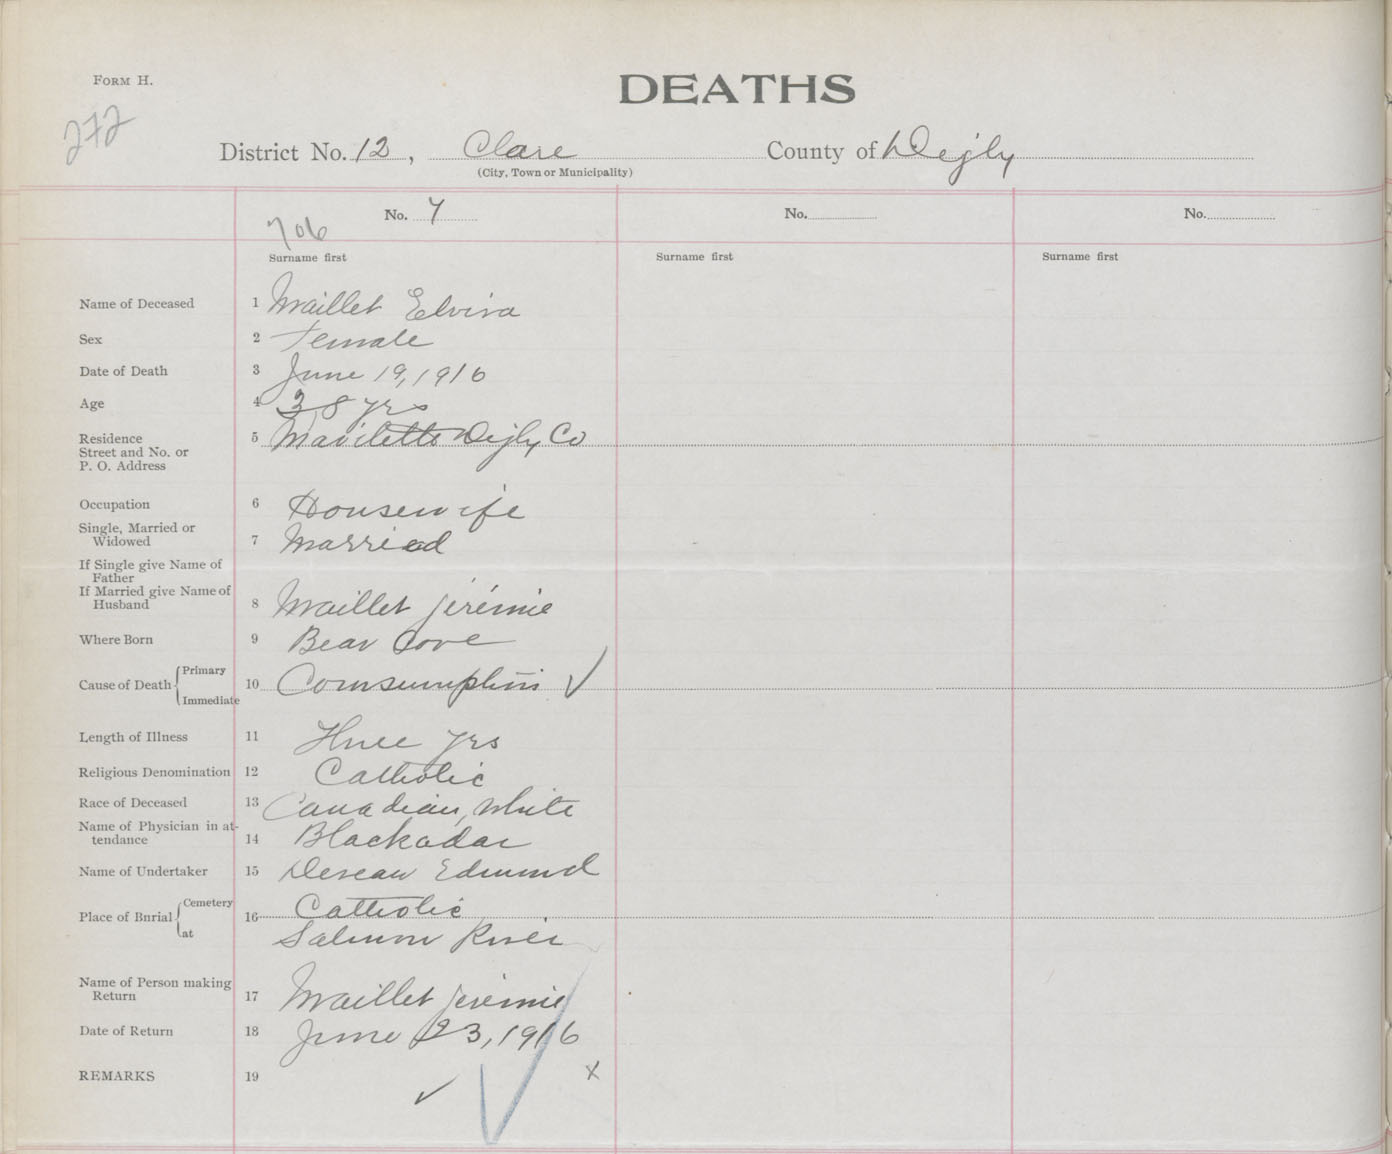 FORM H.
DEATHS
272
District No. 12, Clare County of Digby
(City, Town or Municipality)
No. 7 No. No.
706
Surname first Surname first Surname first
Name of Deceased 1 Maillet Elvira
Sex 2 Female
Date of Death 3 June 19, 1916
Age 4 38 yrs
Residence 5 Mavilette Digby Co
Street and No. or
P. O. Address
Occupation 6 Housewife
Single, Married or
Widowed 7 Married
If Single give Name of
Father
If Married give Name of
Husband 8 Maillet jérémie
Where Born 9 Bear Cove
Primary
Cause of Death 10 Comsumption ✓
Immediate
Length of Illness 11 Three yrs
Religious Denomination 12 Catholic
Race of Deceased 13 Canadian, White
Name of Physician in at-
tendance 14 Blackadar
Name of Undertaker 15 Deveau Edmund
Cemetery Catholic
Place of Burial 16
at Salmon River
Name of Person making
Return 17 Maillet jérémie
Date of Return 18 June 23, 1916
REMARKS 19 ✓ x